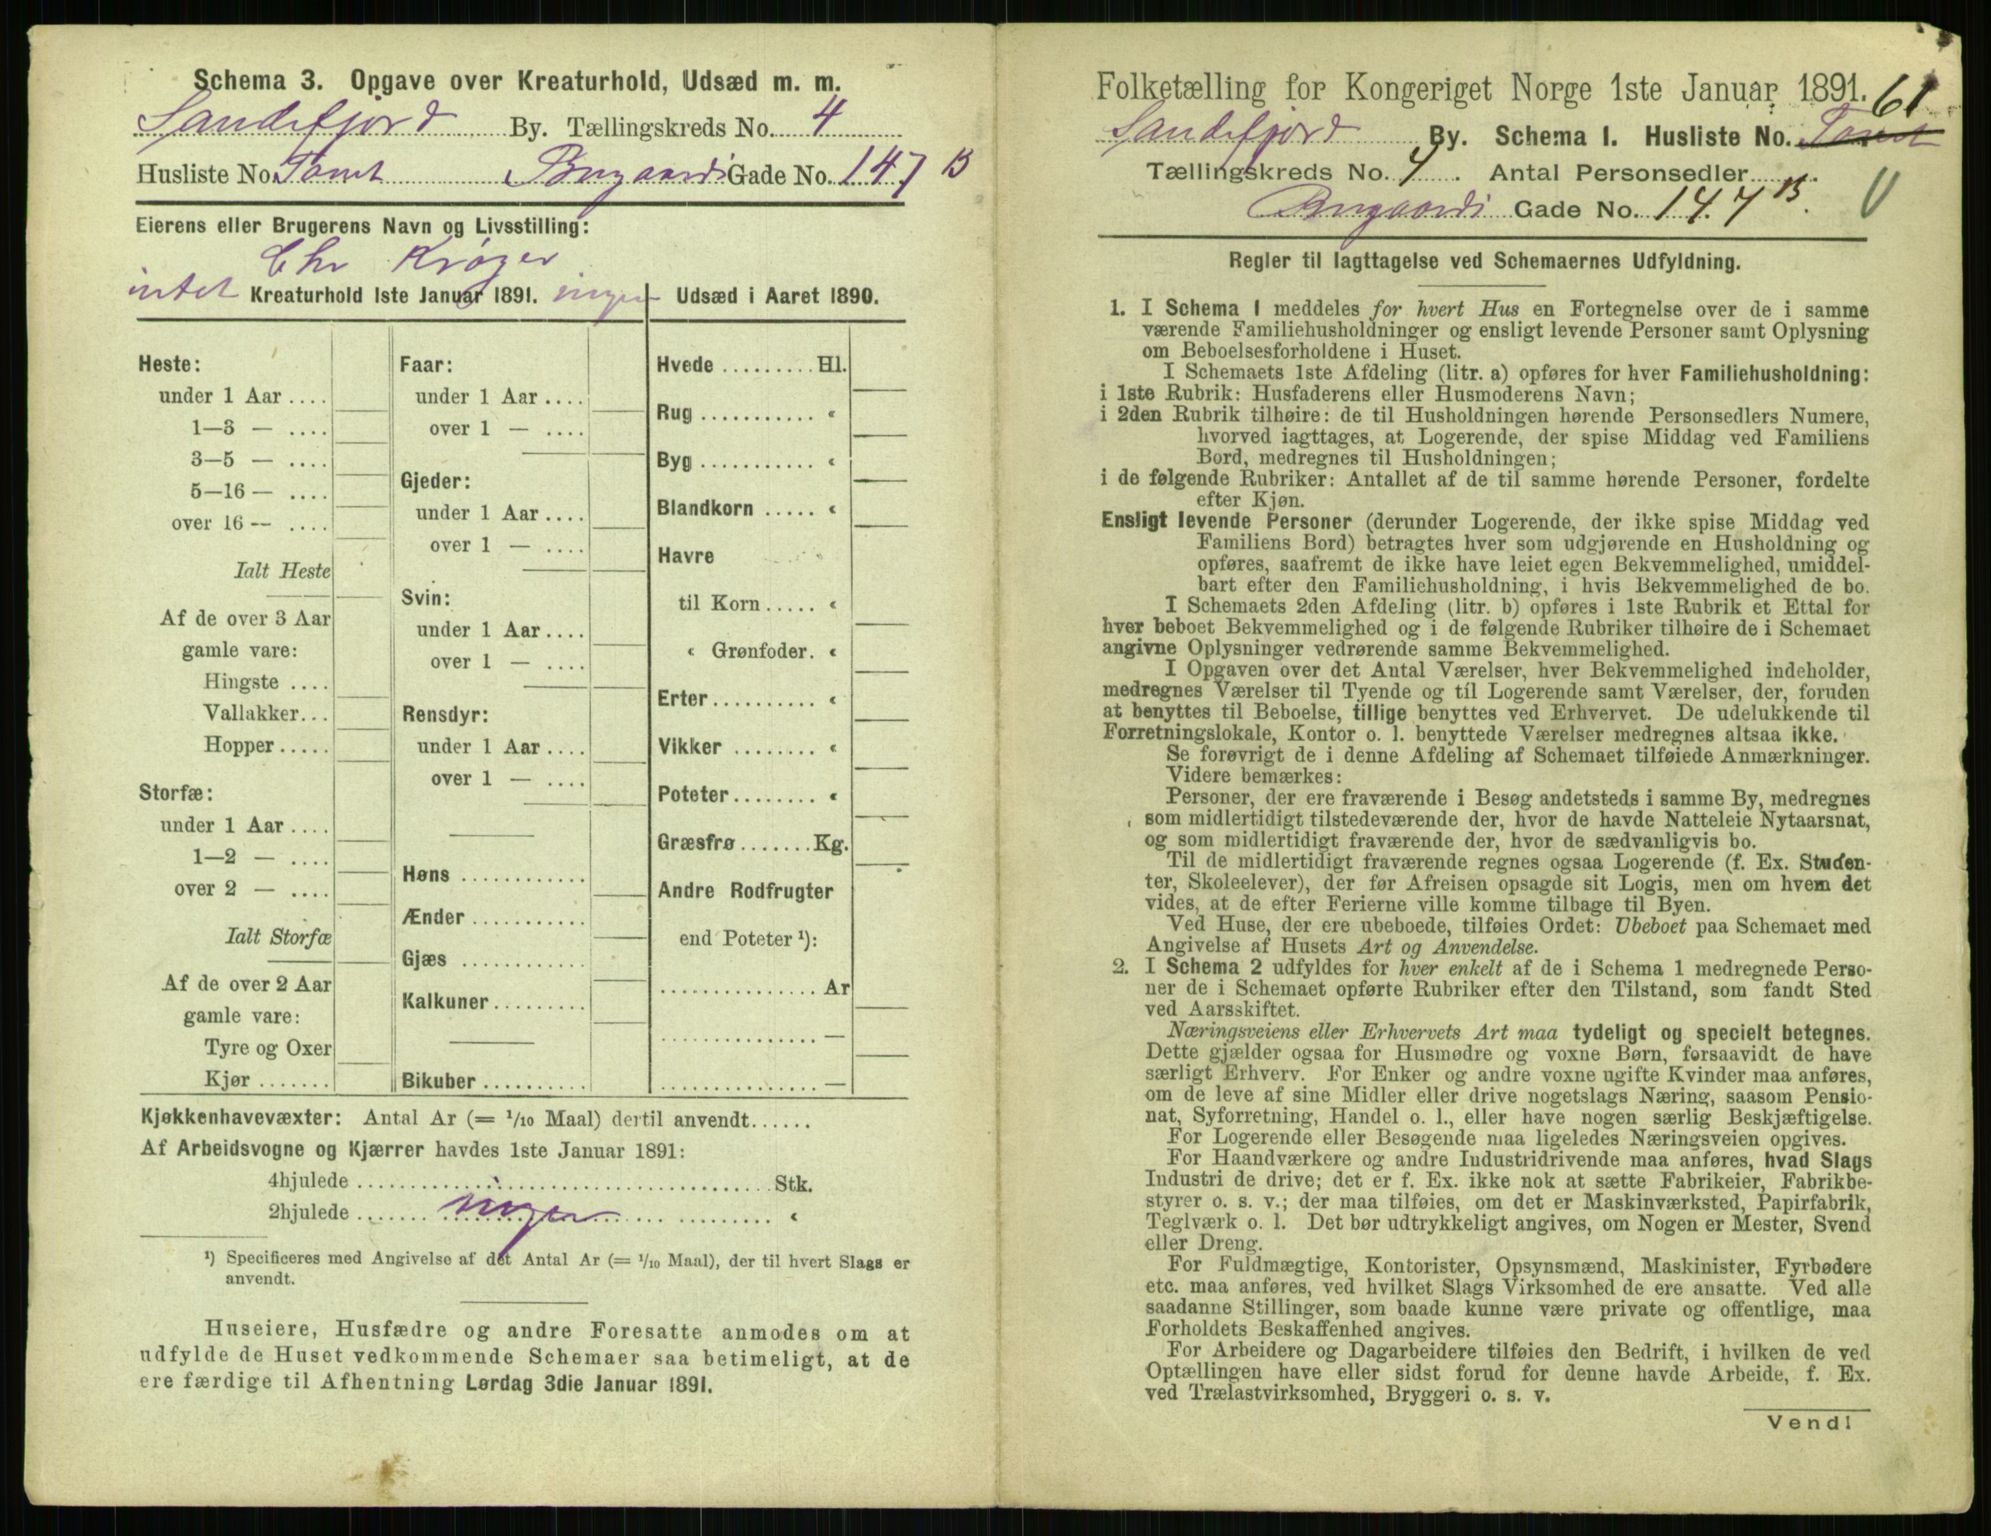 Schema 3. Opgave over Kreaturhold, Udsæd m. m.
Sandefjord By. Tællingskreds No. 4
Husliste No. Tomt Bugaards Gade No. 147 B
Eierens eller Brugerens Navn og Livsstilling:
Chr Krøger
intet Kreaturhold 1ste Januar 1891. ingen Udsæd i Aaret 1890.
Heste:
under 1 Aar ....
1—3 — ....
3—5 — ....
5—16 — ....
over 16 -- ....
Ialt Heste
Af de over 3 Aar
gamle vare:
Hingste ....
Vallakker...
Hopper.....
Storfæ:
under 1 Aar ....
1—2 — ....
over 2 — ....
Ialt Storfæ
Af de over 2 Aar
gamle vare:
Tyre og Oxer
Kjør .......
Faar:
under 1 Aar ....
over 1 — ....
Gjeder:
under 1 Aar ....
over 1 — ....
Svin:
under 1 Aar ....
over 1 — ....
Rensdyr:
under 1 Aar ....
over 1 — ....
Høns ............
Ænder ...........
Gjæs ............
Kalkuner.........
Bikuber ..........
Hvede ......... Hl.
Rug ........... «
Byg ........... «
Blandkorn ..... «
Havre
til Korn ..... «
« Grønfoder. «
Erter.......... «
Vikker ........ «
Poteter........ «
Græsfrø....... Kg.
Andre Rodfrugter
end Poteter ¹):
............... Ar
............... —
............... —
Kjøkkenhavevæxter: Antal Ar (= 1/10 Maal) dertil anvendt......
Af Arbeidsvogne og Kjærrer havdes 1ste Januar 1891:
4hjulede ........................................ Stk.
2hjulede ....... ingen ......... «
¹) Specificeres med Angivelse af det Antal Ar (= 1/10 Maal), der til hvert Slags er
anvendt.
Huseiere, Husfædre og andre Foresatte anmodes om at
udfylde de Huset vedkommende Schemaer saa betimeligt, at de
ere færdige til Afhentning Lørdag 3die Januar 1891.
Folketælling for Kongeriget Norge 1ste Januar 1891. 61
Sandefjord By. Schema 1. Husliste No. Tomt
Tællingskreds No. 4. Antal Personsedler ........
Bugaards Gade No. 147 B.
Regler til Iagttagelse ved Schemaernes Udfyldning.
1. I Schema 1 meddeles for hvert Hus en Fortegnelse over de i samme
værende Familiehusholdninger og ensligt levende Personer samt Oplysning
om Beboelsesforholdene i Huset.
I Schemaets 1ste Afdeling (litr. a) opføres for hver Familiehusholdning:
i 1ste Rubrik: Husfaderens eller Husmoderens Navn;
i 2den Rubrik tilhøire: de til Husholdningen hørende Personsedlers Numere,
hvorved iagttages, at Logerende, der spise Middag ved Familiens
Bord, medregnes til Husholdningen;
i de følgende Rubriker: Antallet af de til samme hørende Personer, fordelte
efter Kjøn.
Ensligt levende Personer (derunder Logerende, der ikke spise Middag ved
Familiens Bord) betragtes hver som udgjørende en Husholdning og
opføres, saafremt de ikke have leiet egen Bekvemmelighed, umiddel-
bart efter den Familiehusholdning, i hvis Bekvemmelighed de bo.
I Schemaets 2den Afdeling (litr. b) opføres i 1ste Rubrik et Ettal for
hver beboet Bekvemmelighed og i de følgende Rubriker tilhøire de i Schemaet
angivne Oplysninger vedrørende samme Bekvemmelighed.
I Opgaven over det Antal Værelser, hver Bekvemmelighed indeholder,
medregnes Værelser til Tyende og til Logerende samt Værelser, der, foruden
at benyttes til Beboelse, tillige benyttes ved Erhvervet. De udelukkende til
Forretningslokale, Kontor o. l. benyttede Værelser medregnes altsaa ikke.
Se forøvrigt de i denne Afdeling af Schemaet tilføiede Anmærkninger.
Videre bemærkes:
Personer, der ere fraværende i Besøg andetsteds i samme By, medregnes
som midlertidigt tilstedeværende der, hvor de havde Natteleie Nytaarsnat,
og som midlertidigt fraværende der, hvor de sædvanligvis bo.
Til de midlertidigt fraværende regnes ogsaa Logerende (f. Ex. Studen-
ter, Skoleelever), der før Afreisen opsagde sit Logis, men om hvem det
vides, at de efter Ferierne ville komme tilbage til Byen.
Ved Huse, der ere ubeboede, tilføies Ordet: Ubeboet paa Schemaet med
Angivelse af Husets Art og Anvendelse.
2. I Schema 2 udfyldes for hver enkelt af de i Schema 1 medregnede Perso-
ner de i Schemaet opførte Rubriker efter den Tilstand, som fandt Sted
ved Aarsskiftet.
Næringsveiens eller Erhvervets Art maa tydeligt og specielt betegnes.
Dette gjælder ogsaa for Husmødre og voxne Børn, forsaavidt de have
særligt Erhverv. For Enker og andre voxne ugifte Kvinder maa anføres,
om de leve af sine Midler eller drive nogetslags Næring, saasom Pensio-
nat, Syforretning, Handel o. l., eller have nogen særlig Beskjæftigelse.
For Logerende eller Besøgende maa ligeledes Næringsveien opgives.
For Haandværkere og andre Industridrivende maa anføres, hvad Slags
Industri de drive; det er f. Ex. ikke nok at sætte Fabrikeier, Fabrikbe-
styrer o. s. v.; der maa tilføies, om det er Maskinværksted, Papirfabrik,
Teglværk o. l. Det bør udtrykkeligt angives, om Nogen er Mester, Svend
eller Dreng.
For Fuldmægtige, Kontorister, Opsynsmænd, Maskinister, Fyrbødere
etc. maa anføres, ved hvilket Slags Virksomhed de ere ansatte. Ved alle
saadanne Stillinger, som baade kunne være private og offentlige, maa
Forholdets Beskaffenhed angives.
For Arbeidere og Dagarbeidere tilføies den Bedrift, i hvilken de ved
Optællingen have eller sidst forud for denne havde Arbeide, f. Ex.
ved Trælastvirksomhed, Bryggeri o. s. v.
Vend!